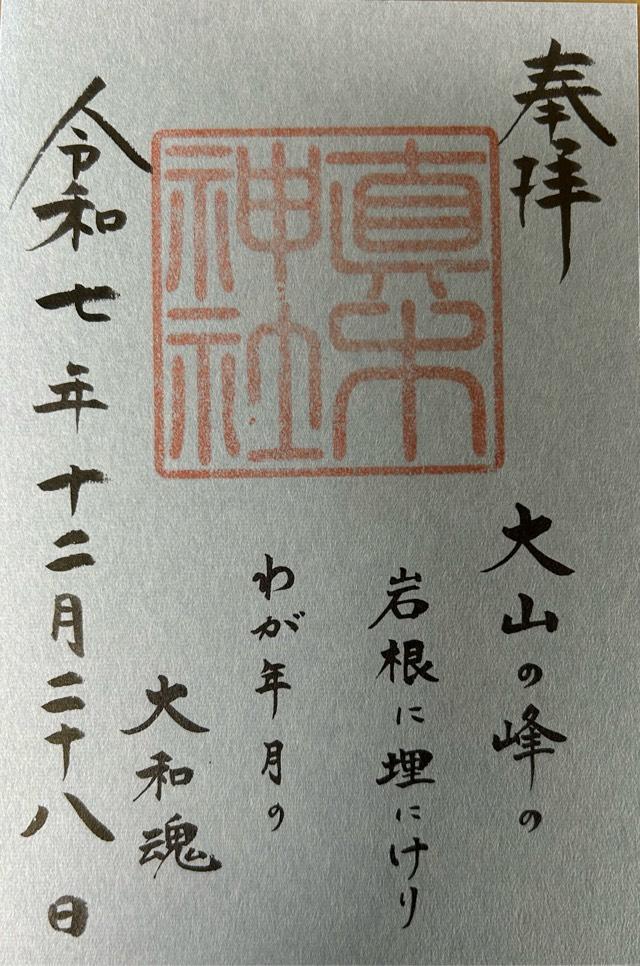 奉拝
真木
神社
大山の峰の
岩根に埋にけり
わが年月の
大和魂
令和七年十二月二十八日